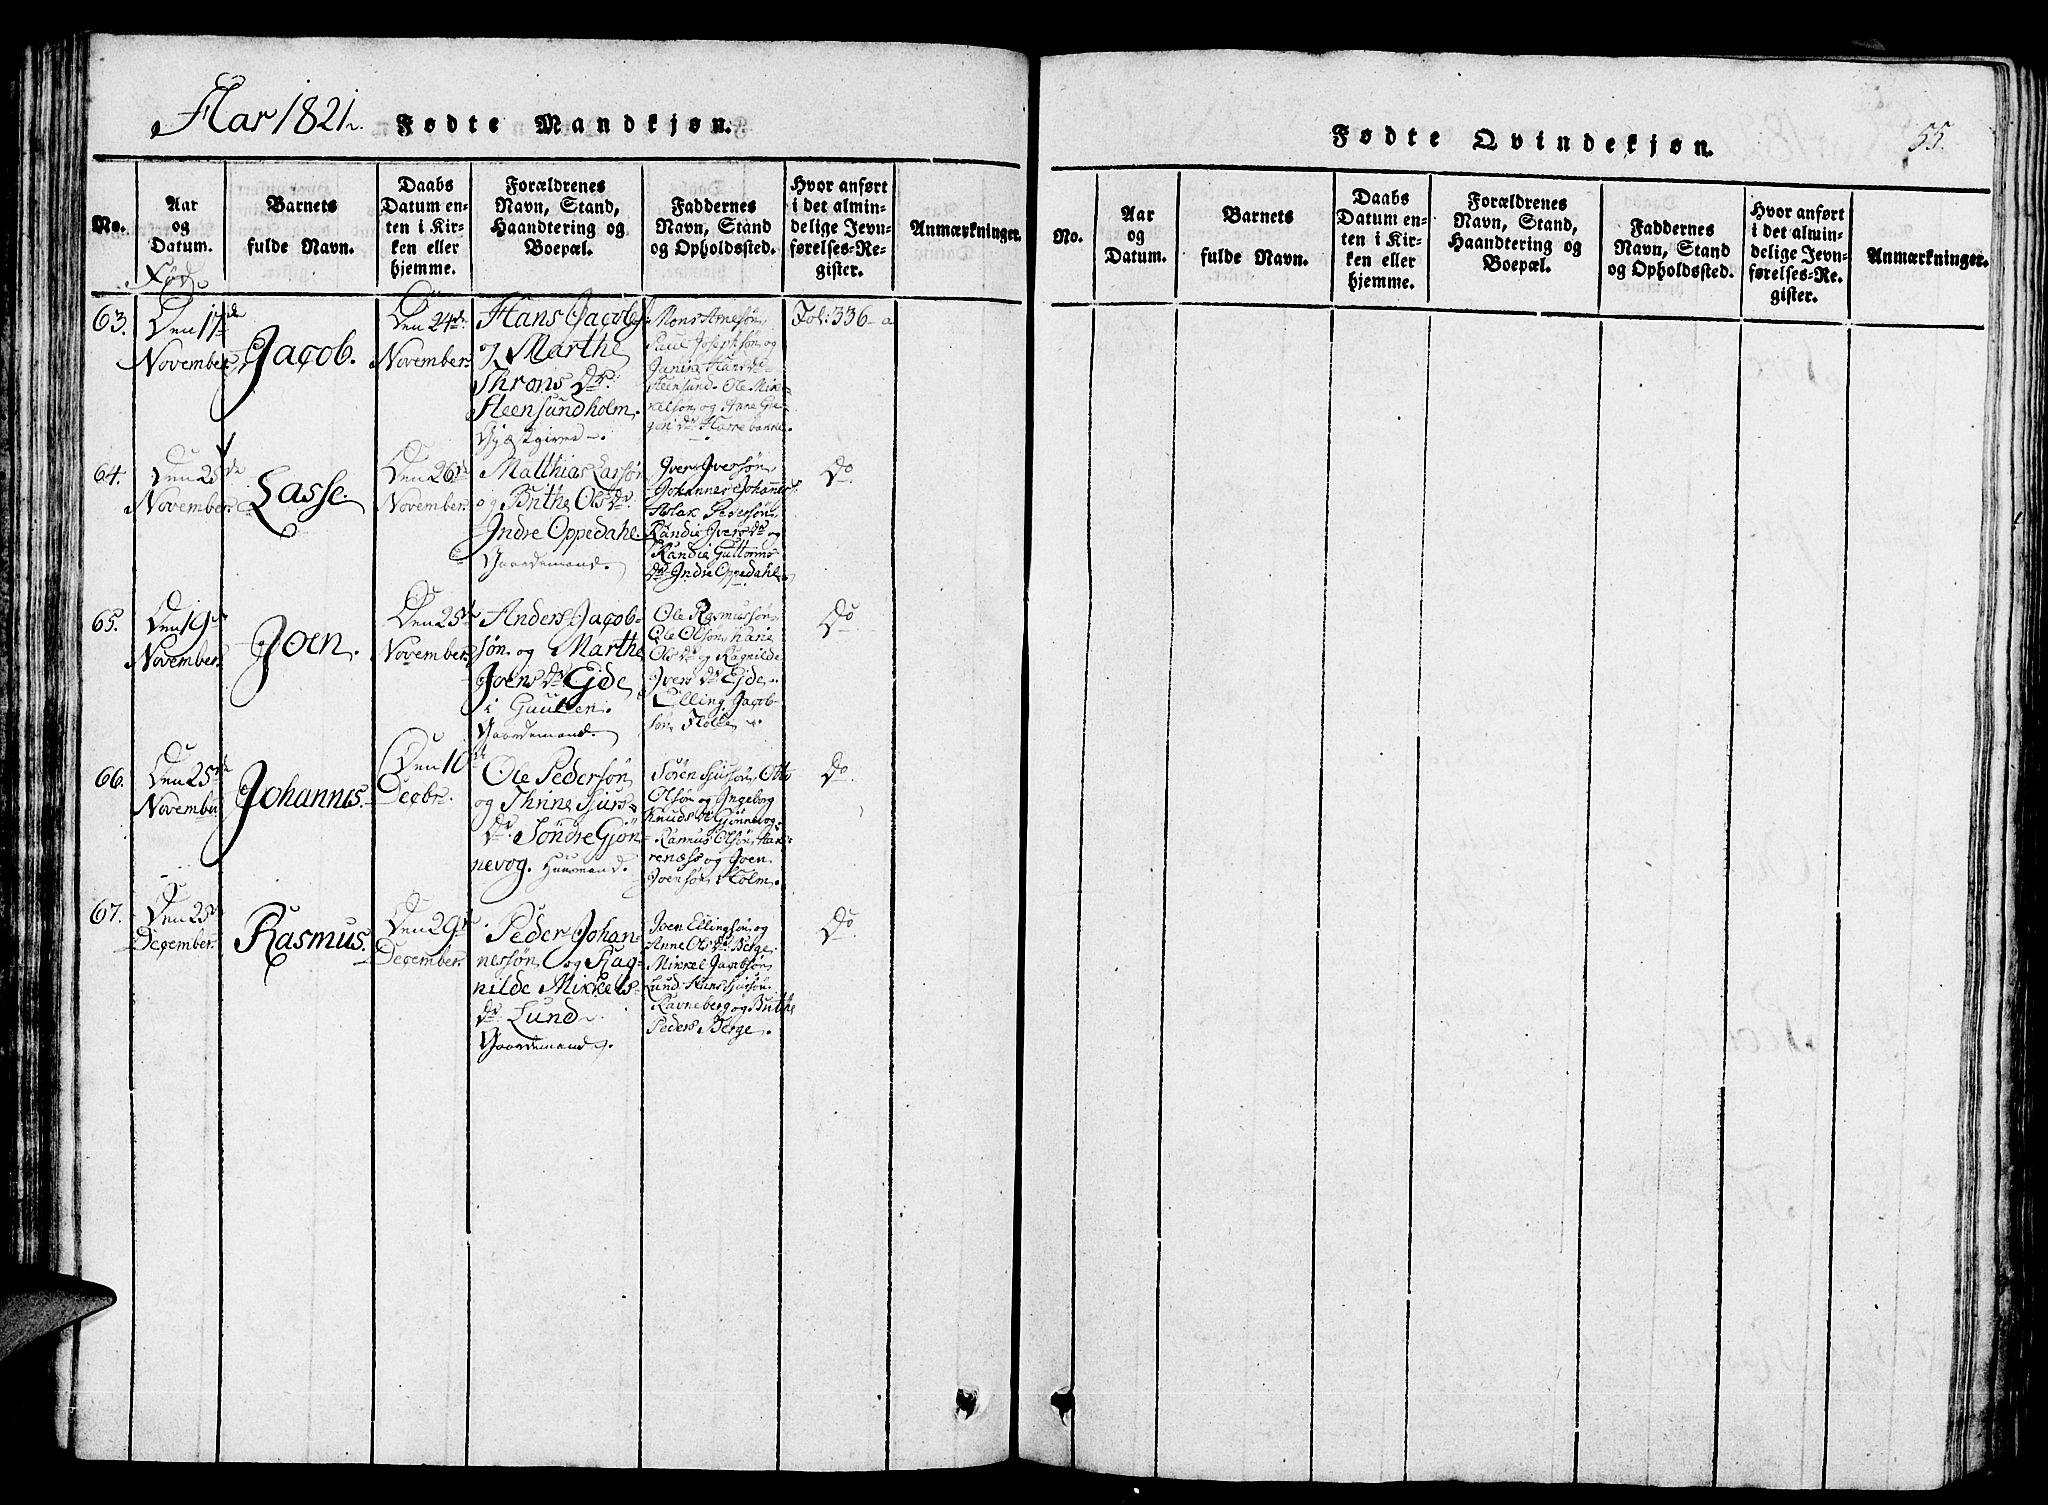 Aar 1821.
Fødte Mandkjøn.
No.
Aar
og
Datum.
Fød.
Barnets
fulde Navn.
Daabs
Datum en-
ten i Kir-
ken eller
hjemme.
Forældrenes
Navn, Stand,
Haandtering og
Boepæl.
Faddernes
Navn, Stand
og Opholdssted.
Hvor anført
i det almin-
delige Jevn-
førelses-Re-
gister.
Anmærkninger.
63.
Den 17de
November.
Jacob.
Den 24de
November.
Hans Jacobs:
og Marthe
Throns Dr:
Steensundholm.
Gjæstgiver.
Mons Arnesøn,
Paul Josephsøn og
Hans Dr
Steensund. Ole Mik-
kelsøn og Anne
Dr
Fol: 336-a
64.
Den 25de
November.
Lasse.
Den 26de
November.
Matthias Larsøn
og Brithe Ols Dr.
Indre Oppedahl.
Gaardemand.
Iver Iversøn,
Johannes Johannes:
Aslak Pedersøn,
Randie Ivers Dr og
Randie Guttorms
Dr Indre Oppedahl.
Do
65.
Den 19de
November.
Joen.
Den 25de
November.
Anders Jacob-
søn og Marthe
Joens Dr Ejde
i Guulen.
Gaardemand.
Ole Rasmussøn,
Ole Olsøn, Karie
Ols Dr og Ragnilde
Ivers Dr Ejde.
Elling Jacob-
søn
Do
66.
Den 25de
November
Johannes.
Den 10de
Decbr.
Ole Pedersøn
og Thrine Siurs-
Dr. Søndre Gjøn-
nevog. Huusmand.
Søren Siursøn, Otto
Olsøn og Ingeborg
Knuds Dr Gjønnevog.
Rasmus Olsøn
renæss og Joen
Joensøn Holm.
Do.
67.
Den 25de
December.
Rasmus.
Den 29de
December.
Peder Johan-
nessøn og Rag-
nilde Mikkels-
Dr. Lund.
Gaardemand.
Joen Ellingsøn og
Anne Ols Dr Berge.
Mikkel Jacobsøn
Lund, Hans Siursøn
Ravneberg og Brithe
Peders Berge.
Do.
55.
Fødte Qvindekjøn.
No.
Aar
og
Datum.
Barnets
fulde Navn.
Daabs
Datum en-
ten i Kir-
ken eller
hjemme.
Forældrenes
Navn, Stand,
Haandtering og
Boepæl.
Faddernes
Navn, Stand
og Opholdssted.
Hvor anført
i det almin-
delige Jevn-
førelses-Re-
gister.
Anmærkninger.